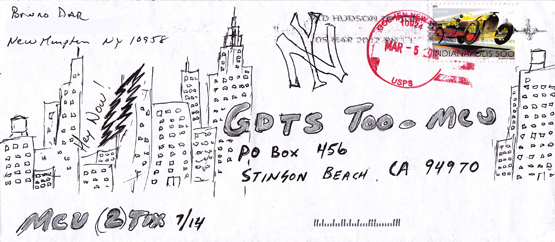 Bruno Dar
New Hampton NY 10958
Hey Now!
NY
HUDSON
05 MAR 2012 PM
GOSHEN NEW
10924
MAR - 5
USPS
INDIANAPOLIS 500
GDTS TOO - MCU
PO BOX 456
STINSON BEACH, CA 94970
MCU (2) TIX 7/14